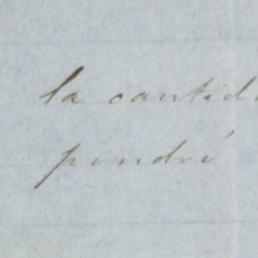 la cantid
pondré